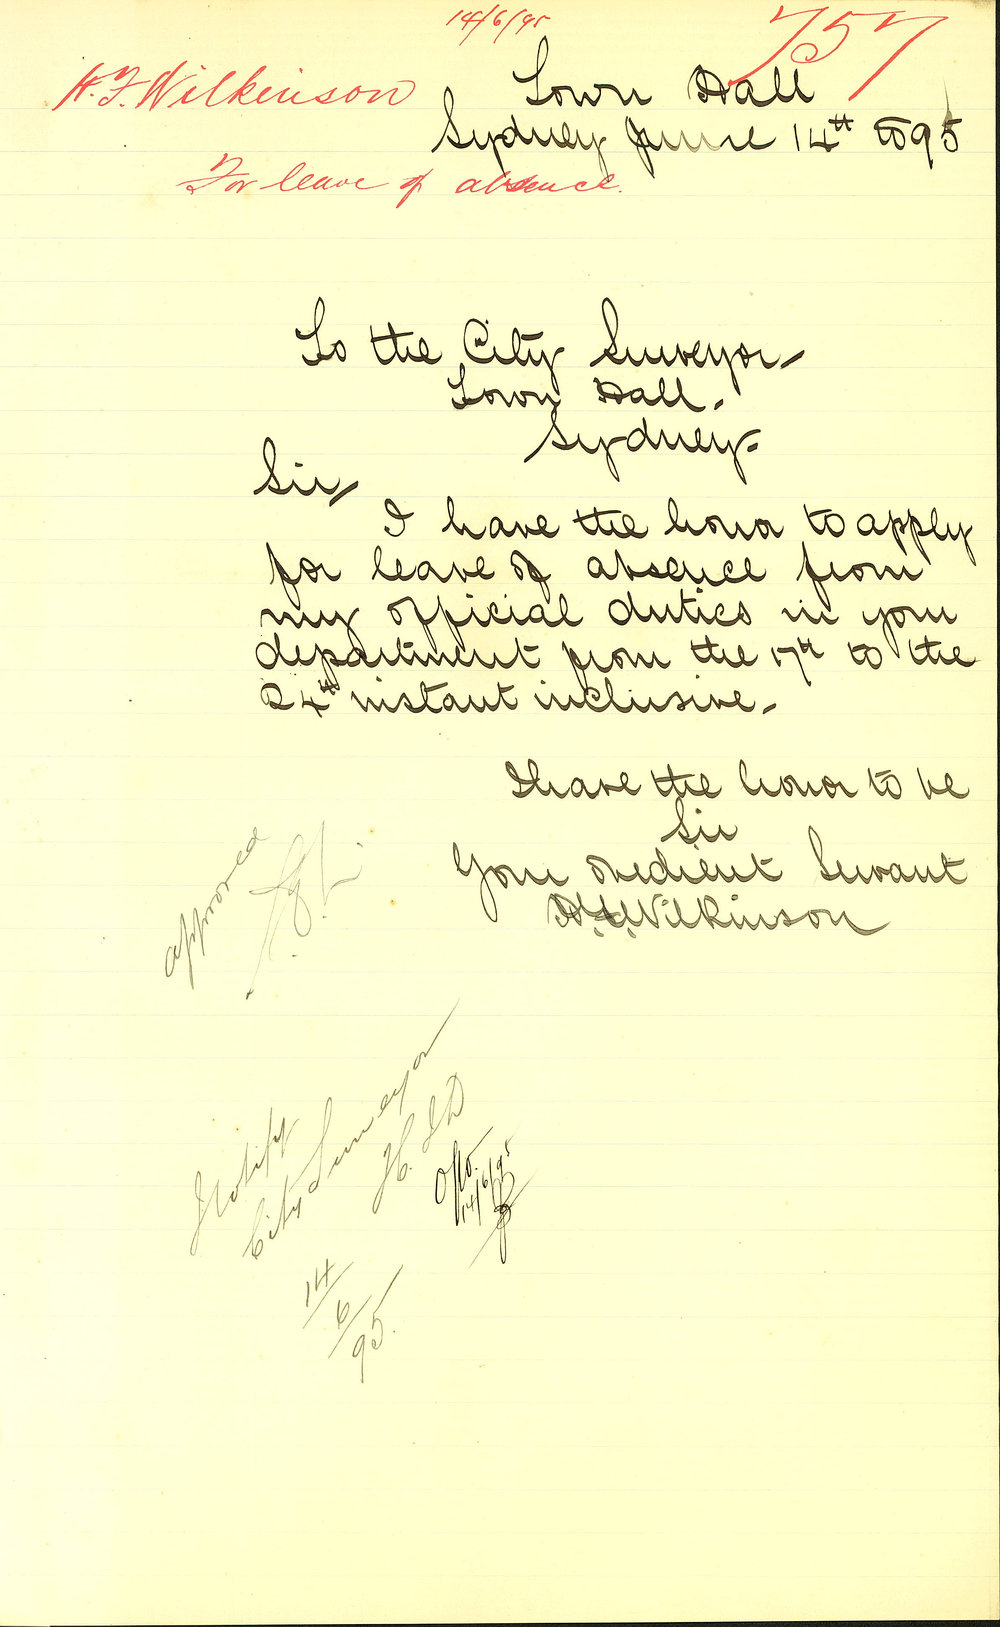 14/6/95
757
H.F. Wilkinson
Town Hall
Sydney June 14th 1895
For leave of absence.
To the City Surveyor
Town Hall.
Sydney.
Sir,
I have the honor to apply
for leave of absence from
my official duties in your
department from the 17th to the
24th instant inclusive.
I have the honor to be
Sir
Your obedient Servant
Wilkinson
approved
Notify
City Surveyor
14/6/95
14
6
95.